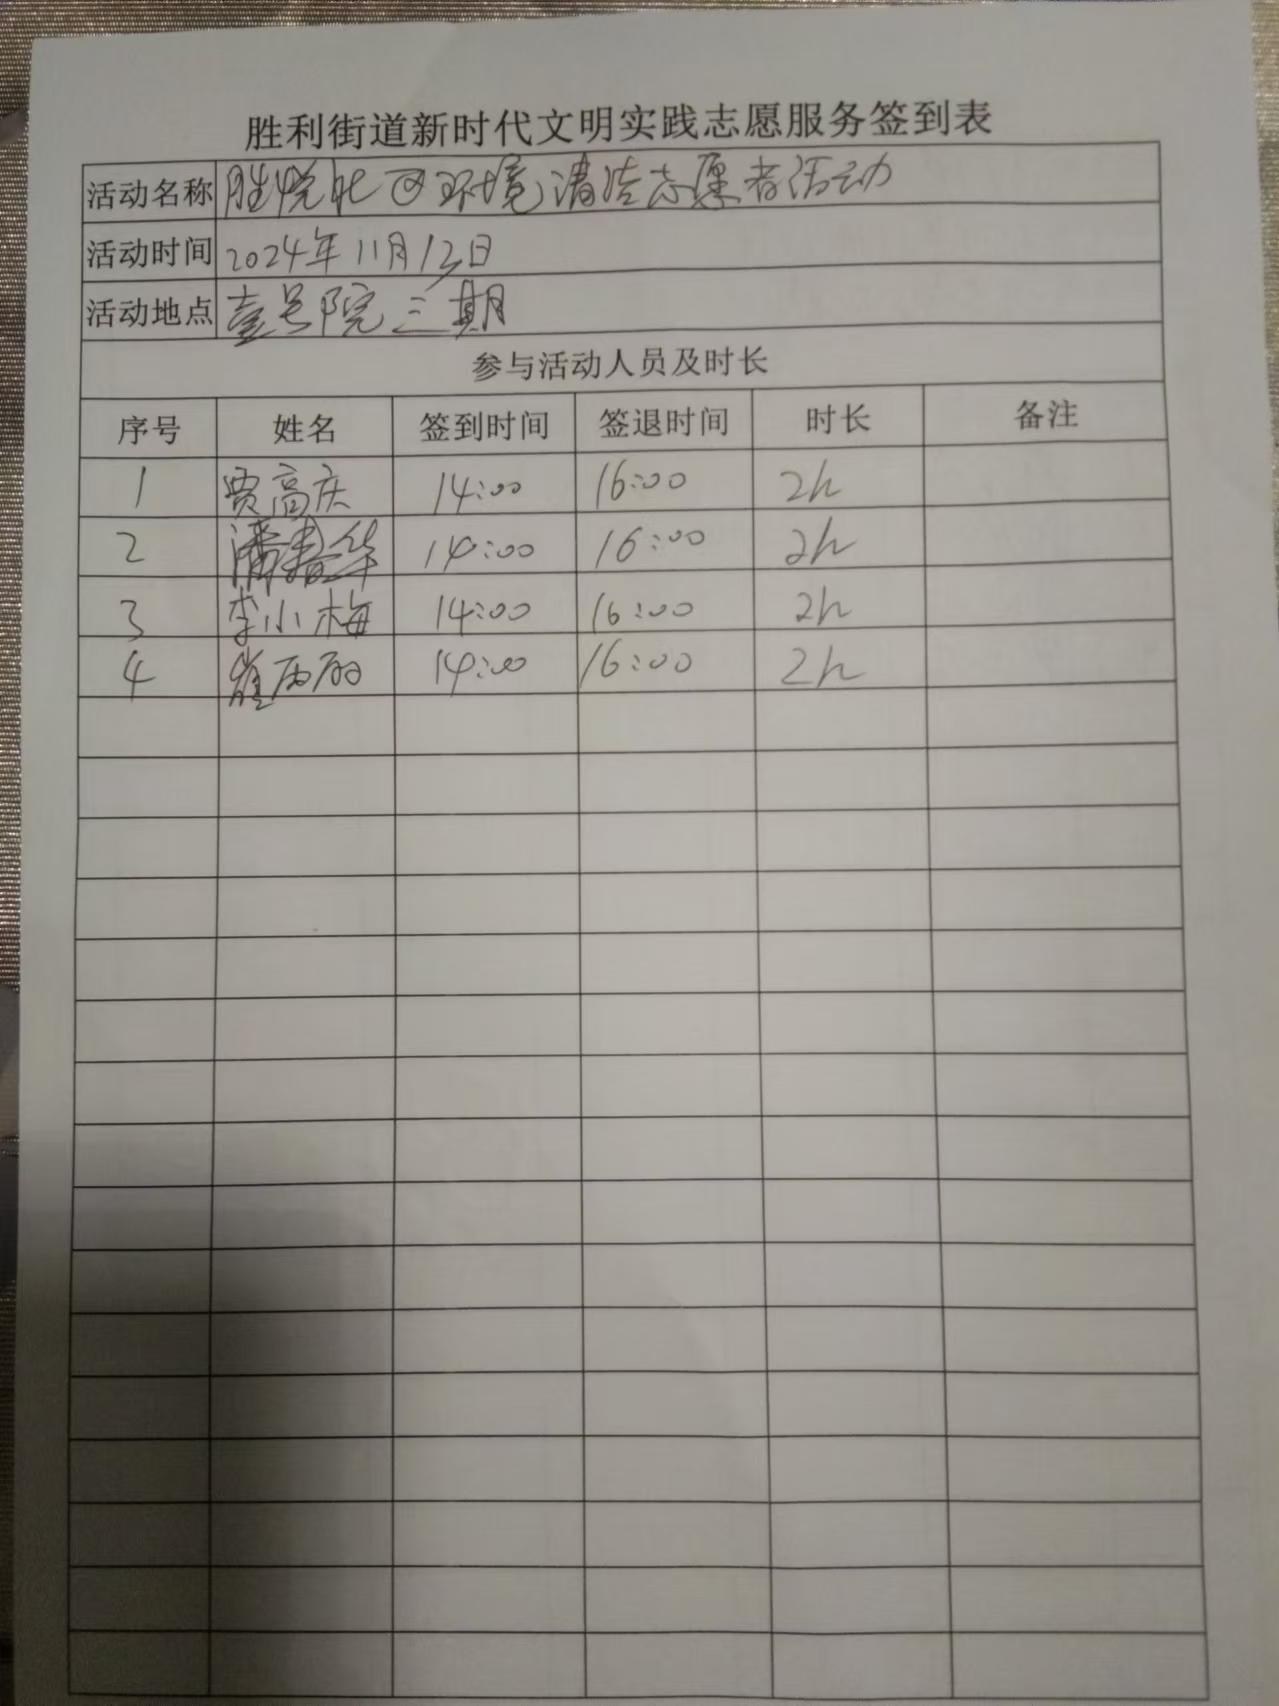 胜利街道新时代文明实践志愿服务签到表
活动名称 胜悦北区环境清洁志愿者活动
活动时间 2024年11月13日
活动地点 壹号院三期
参与活动人员及时长
序号 姓名 签到时间 签退时间 时长 备注
1 贾高庆 14:00 16:00 2h
2 潘春华 14:00 16:00 2h
3 李小梅 14:00 16:00 2h
4 崔丽丽 14:00 16:00 2h